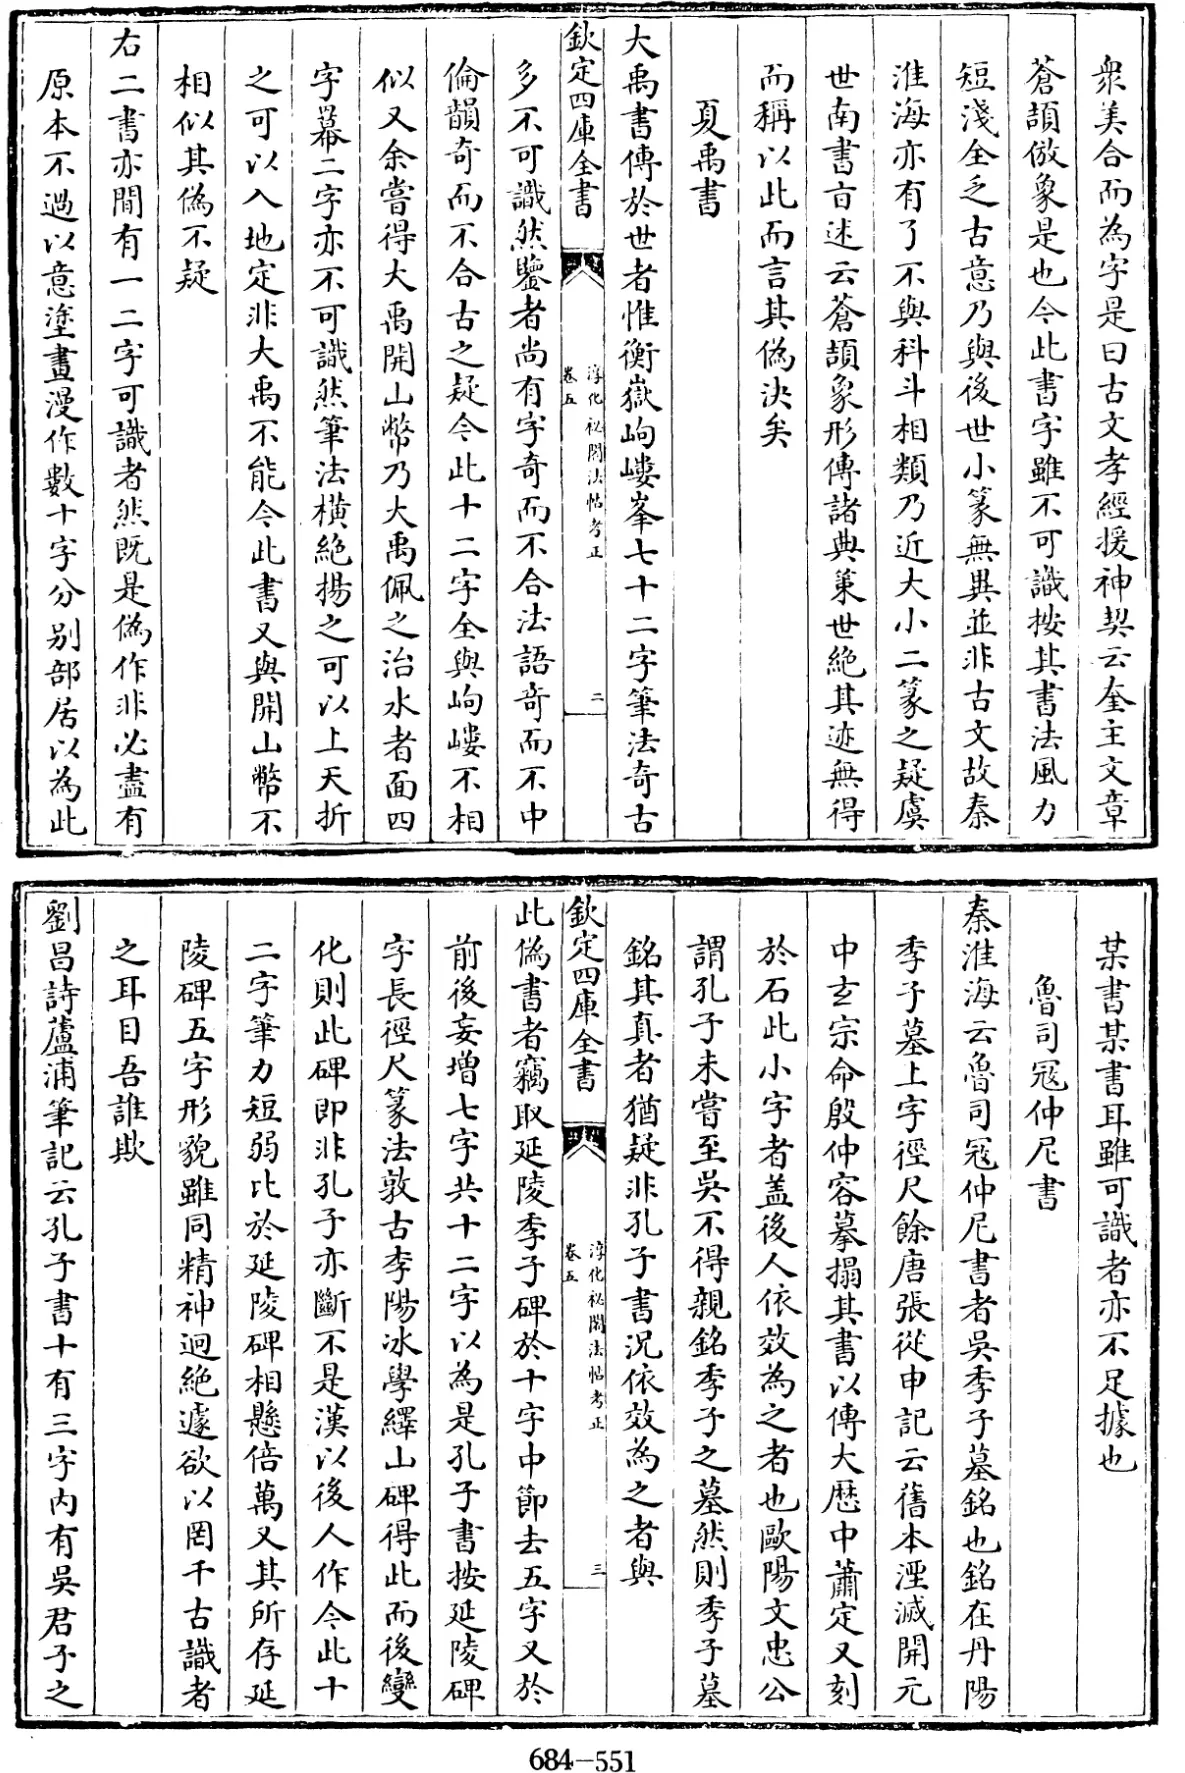 衆美合而為字是曰古文孝經援神契云奎主文章
蒼頡倣象是也今此書字雖不可識按其書法風力
短淺全乏古意乃與後世小篆無異並非古文故秦
淮海亦有了不與科斗相類乃近大小二篆之疑虞
世南書旨述云蒼頡象形傳諸典策世絶其迹無得
而稱以此而言其偽決矣
夏禹書
大禹書傳於世者惟衡嶽岣嶁峯七十二字筆法奇古
欽定四庫全書
淳化秘閣法帖考正
卷五
二
多不可識然鑒者尚有字奇而不合法語奇而不中
倫韻奇而不合古之疑今此十二字全與岣嶁不相
似又余嘗得大禹開山幣乃大禹佩之治水者面四
字幕二字亦不可識然筆法横絶揚之可以上天折
之可以入地定非大禹不能今此書又與開山幣不
相似其偽不疑
右二書亦間有一二字可識者然既是偽作非必盡有
原本不過以意塗畫漫作數十字分别部居以為此
某書某書耳雖可識者亦不足據也
魯司寇仲尼書
秦淮海云魯司寇仲尼書者吳季子墓銘也銘在丹陽
季子墓上字徑尺餘唐張從申記云舊本湮滅開元
中玄宗命殷仲容摹搨其書以傳大厯中蕭定又刻
於石此小字者蓋後人依效為之者也歐陽文忠公
謂孔子未嘗至吳不得親銘季子之墓然則季子墓
銘其真者猶疑非孔子書況依效為之者與
欽定四庫全書
淳化秘閣法帖考正
卷五
三
此偽書者竊取延陵季子碑於十字中節去五字又於
前後妄增七字共十二字以為是孔子書按延陵碑
字長徑尺篆法敦古李陽冰學繹山碑得此而後變
化則此碑即非孔子亦斷不是漢以後人作今此十
二字筆力短弱比於延陵碑相懸倍萬又其所存延
陵碑五字形貌雖同精神迥絶遽欲以罔千古識者
之耳目吾誰欺
劉昌詩蘆浦筆記云孔子書十有三字内有吳君子之
684-551